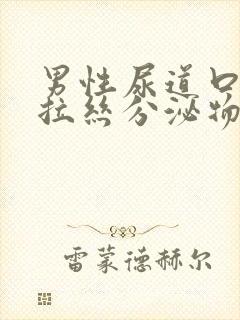 男性尿道口
拉丝分泌物
雷蒙德赫尔